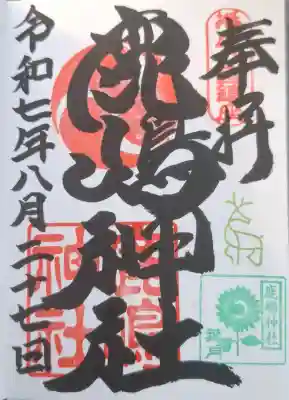 奉拝
鹿嶋神社
令和七年八月二十七日
鹿島神社
鹿嶋神社
葉月